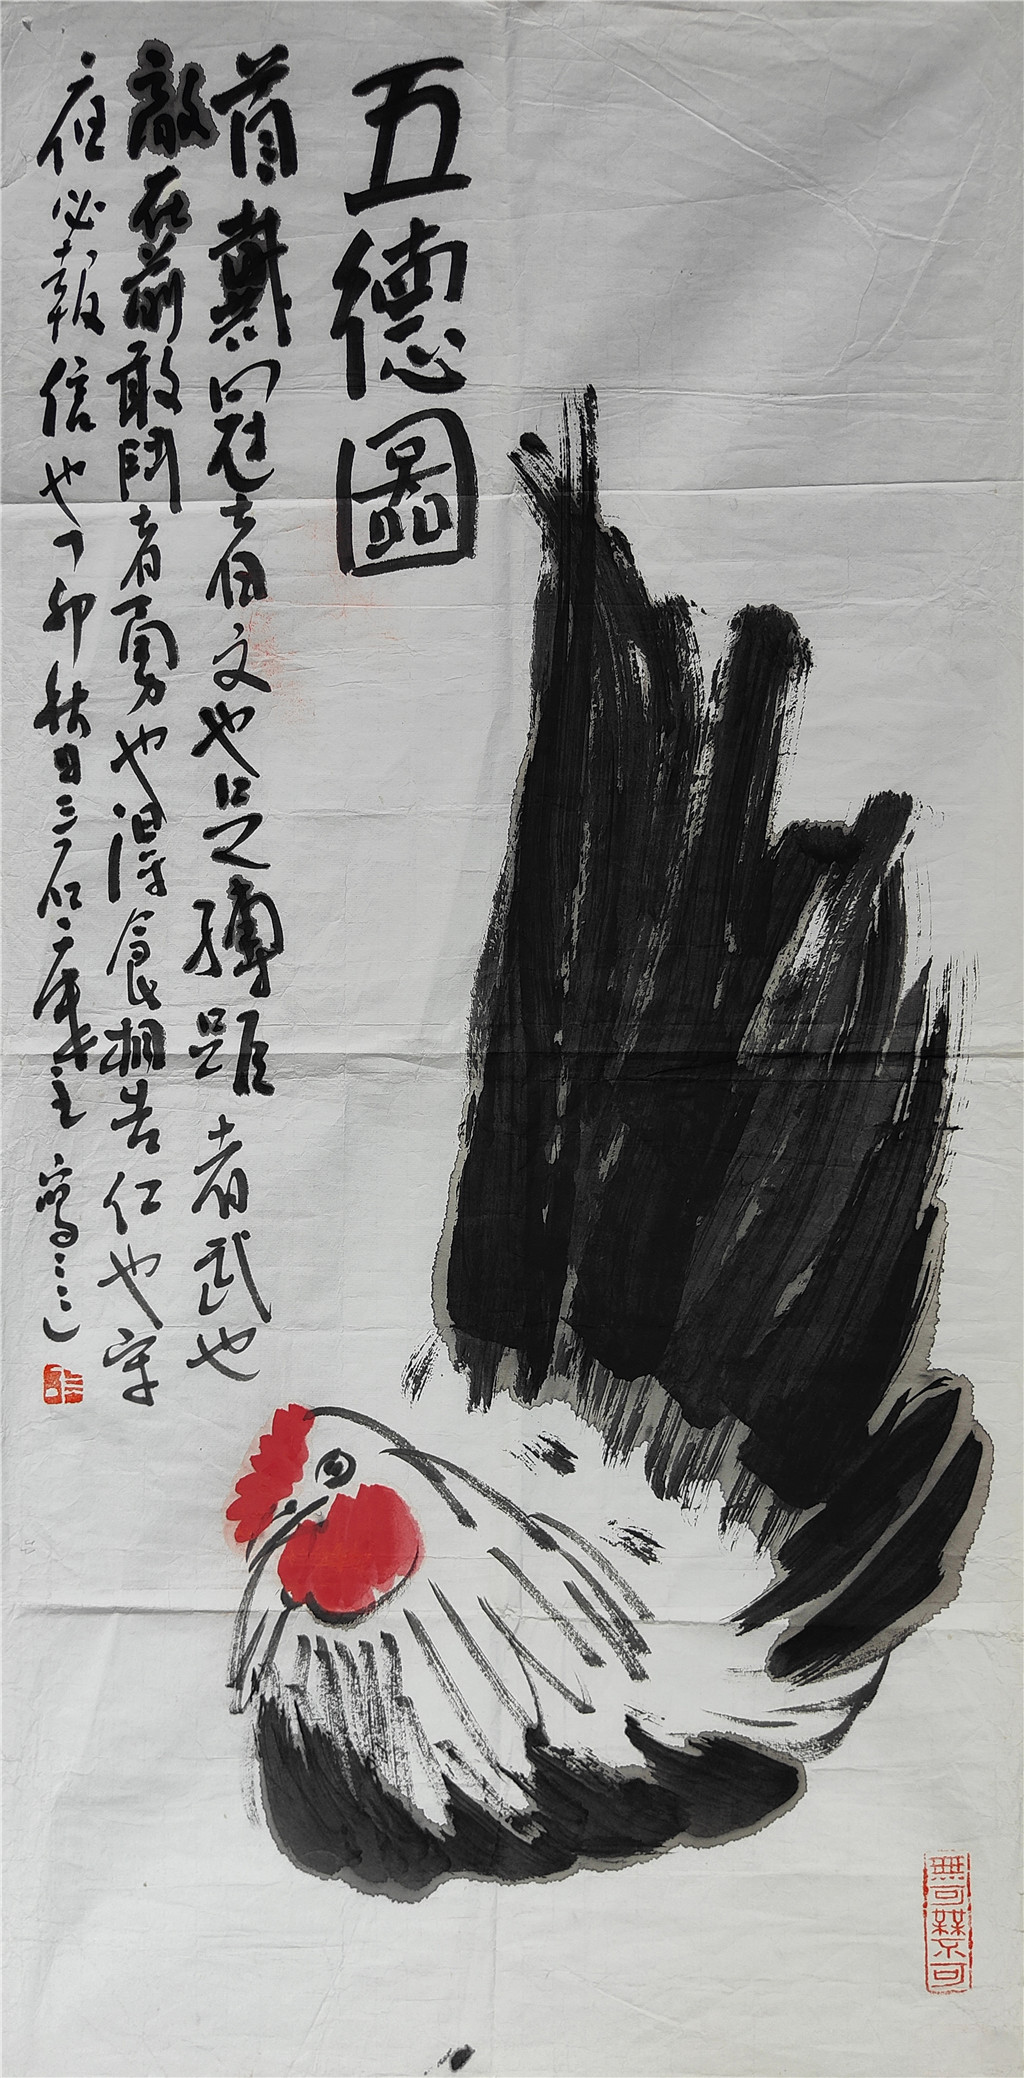 五德圖
首戴冠者文也足縛距者武也
敵在前敢鬥者勇也得食相告仁也守
夜必報信也丁卯秋日三石主寫
無可無不可